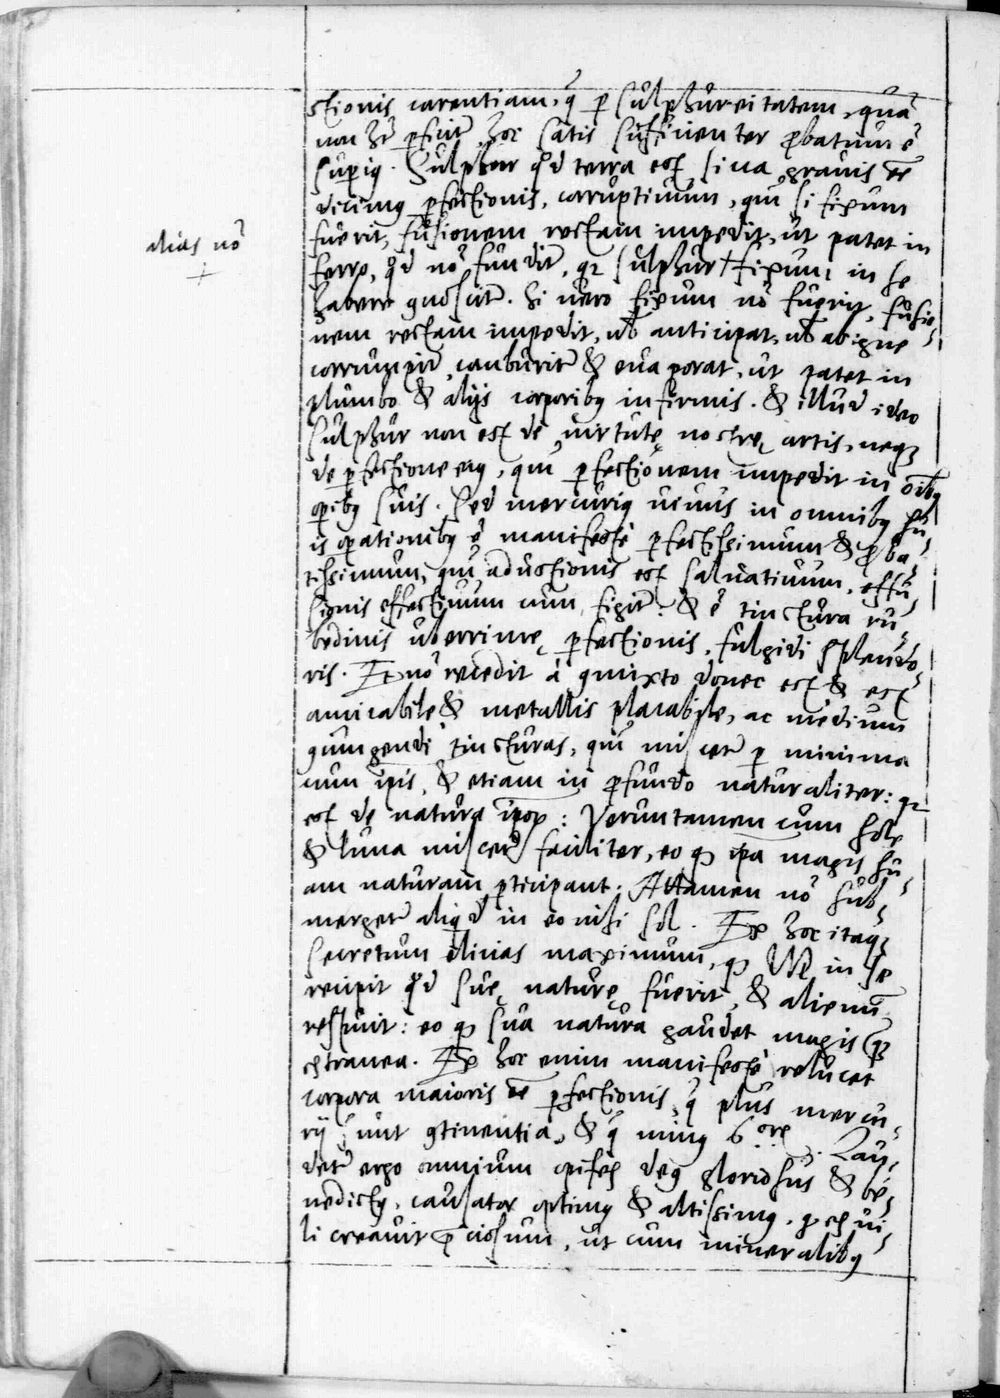 ctionis carentiam, q̃ p sulphureitatem, quã
non hꝫ pficit, hoc satis sufficienter ꝓbatum ẽ
supius. Sulphur qd terra est sicca, grauis ee
dicimus pfectionis corruptiuum, qui si fixum
fuerit, fusionem rectam impedit, ut patet in
alias nõ
ferro, qd nõ fundit, qꝛ sulphur + fixum in se
habere gnoscit. Si uero fixum nõ fuerit, fusio-
nem rectam impedit, uꝉ anticipat, uꝉ ab igne
corrumpit, comburit & euaporat, ut patet in
plumbo & alijs corporibus infirmis. & illud ideo
sulphur non est de uirtute nostrę artis, neqꝫ
de pfectione eius, qui pfectionem impedit in oibus
opibus suis. Sed mercurius uiuus in omnibus su-
is opationibus ẽ manifeste pfectissimum & ꝓba-
tissimum, qui adustionis est saluatiuum, effu-
sionis effectiuum cum figit. & ẽ tinctura ru-
bedinis uberrimę pfectionis, fulgidi splendo-
ris. Et nõ recedit à gmixto donec est & est
amicabile & metallis placabile, ac medium
gungendi tincturas, qui miscet p minima
cum ipis, & etiam in ꝓfundo naturaliter: qꝛ
est de natura ipoꝝ: Veruntamen cum sole
& luna miscet faciliter, eo qꝫ ipa magis su-
am naturam pticipant. Attamen nõ sub-
merget aliqd in eo nisi sol. Ex hoc itaqꝫ
secretum elicias maximum, qꝫ in se
recipit qd suę naturę fuerit, & alienũ
respuit: eo qꝫ sua natura gaudet magis qꝫ
extranea. Ex hoc enim manifestè relucet
corpora maioris ee pfectionis, q̃ plus mercu-
rij sunt gtinentia, & q̃ minus 6 ore. Lau-
det ergo omnium opifex deus gloriosus & be-
nedictus, causator optimus & altissimus, q ex ui-
li creauit pciosum, ut cum mineralibus